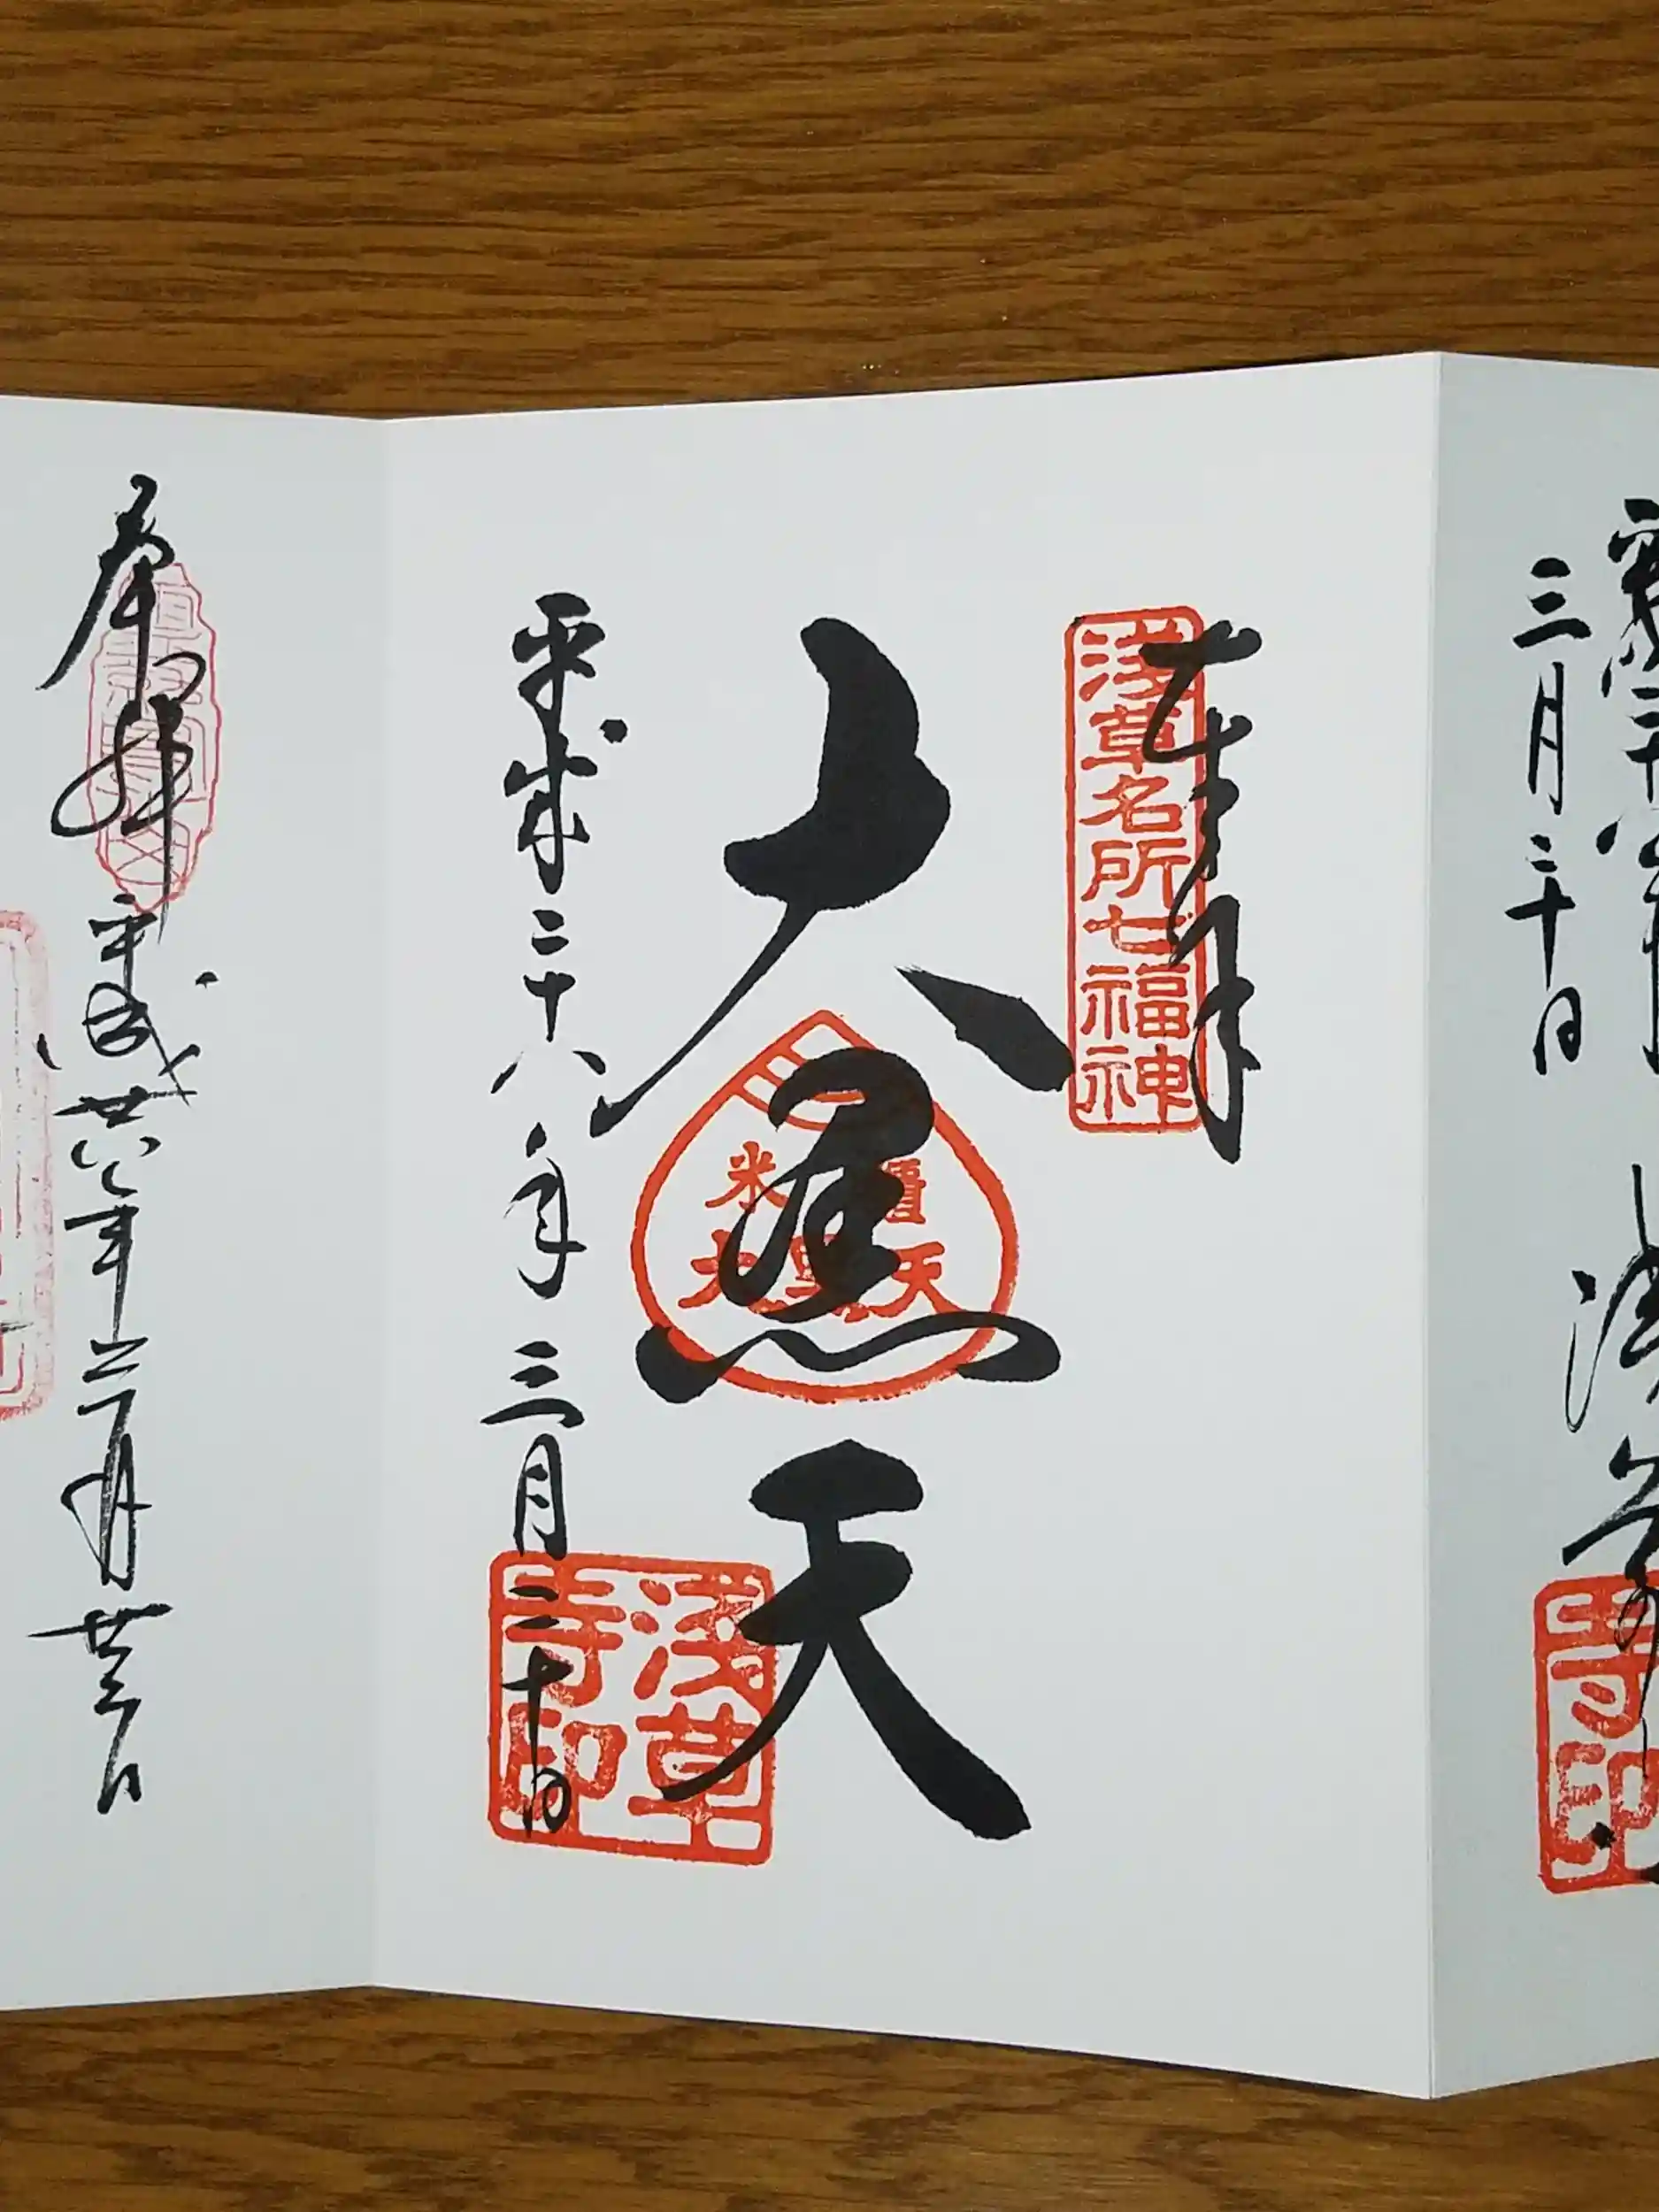 三月二十日
奉拝
浅草名所七福神
大黒天
米櫃
大黒天
平成二十八年三月二十日
浅草
寺印
寺印
奉拝
平成廿八年三月廿三日